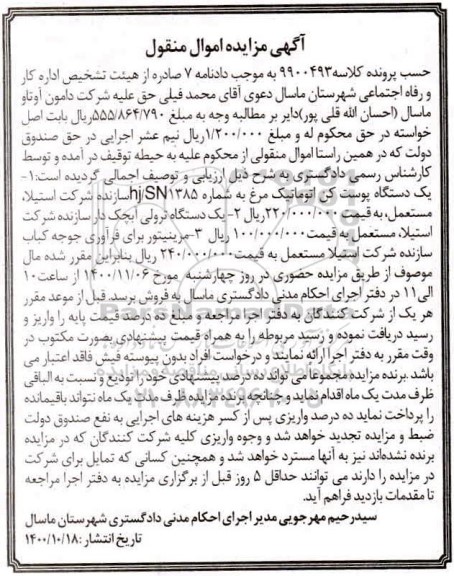 آگهی مزایده اموال منقول
حسب پرونده کلاسه ۹۹۰۰۴۹۳ به موجب دادنامه ۷ صادره از هیئت تشخیص اداره کار
و رفاه اجتماعی شهرستان ماسال دعوی آقای محمد فیلی حق علیه شرکت دامون آوتاو
ماسال (احسان الله قلی پور)دایر بر مطالبه وجه به مبلغ ۵۵۵/۸۶۴/۷۹۰ریال بابت اصل
خواسته در حق محکوم له و مبلغ ۱/۲۰۰/۰۰۰ ریال نیم عشر اجرایی در حق صندوق
دولت که در همین راستا اموال منقولی از محکوم علیه به حیطه توقیف در آمده و توسط
کارشناس رسمی دادگستری به شرح ذیل ارزیابی و توصیف اجمالی گردیده است:۱-
یک دستگاه پوست کن اتوماتیک مرغ به شماره hj/SN۱۳۸۵سازنده شرکت استیلا،
مستعمل، به قیمت ۲۲۰/۰۰۰/۰۰۰ریال ۲- یک دستگاه ترولی آبچک دار سازنده شرکت
استیلا، مستعمل به قیمت ۱۰۰/۰۰۰/۰۰۰ ریال ۳-مرینیتور برای فرآوری جوجه کباب
سازنده شرکت استیلا مستعمل به قیمت ۲۴۰/۰۰۰/۰۰۰ ریال بنابراین مقرر شده مال
موصوف از طریق مزایده حضوری در روز چهارشنبه مورخ ۱۴۰۰/۱۱/۰۶ از ساعت ۱۰
الی۱۱ در دفتر اجرای احکام مدنی دادگستری ماسال به فروش برسد. قبل از موعد مقرر
هر یک از شرکت کنندگان به دفتر اجرا مراجعه و مبلغ ده درصد قیمت پایه را واریز و
رسید دریافت نموده و رسید مربوطه را به همراه قیمت پیشنهادی بصورت مکتوب در
وقت مقرر به دفتر اجرا ارائه نمایند و درخواست افراد بدون پیوسته فیش فاقد اعتبار می
باشد .برنده مزایده مجموعا می تواند ده درصد پیشنهادی خود را تودیع و نسبت به الباقی
ظرف مدت یک ماه اقدام نماید و چنانچه برنده مزایده ظرف مدت یک ماه نتواند باقیمانده
را پرداخت نماید ده درصد واریزی پس از کسر هزینه های اجرایی به نفع صندوق دولت
ضبط و مزایده تجدید خواهد شد و وجوه واریزی کلیه شرکت کنندگان که در مزایده
برنده نشده‌اند نیز به آنها مسترد خواهد شد و همچنین کسانی که تمایل برای شرکت
در مزایده را دارند می توانند حداقل ۵ روز قبل از برگزاری مزایده به دفتر اجرا مراجعه
تا مقدمات بازدید فراهم آید.
سیدرحیم مهرجویی مدیر اجرای احکام مدنی دادگستری شهرستان ماسال
تاریخ انتشار :۱۴۰۰/۱۰/۱۸